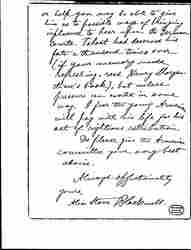 or help you may be able to give
him as to possible ways of bringing
influence to bear upon the German
Courts. Talaat has deserved his
fate a thousand times over
(if your memory needs
refreshing, read Henry Morgen-
thau's book), but unless
pressure can work in some
way, I fear the young Armenian
will pay with his life for his
act of righteous retribution.
Do please give the Armenian
committee your very best
advice.
Always affectionately
yours,
Alice Stone Blackwell.